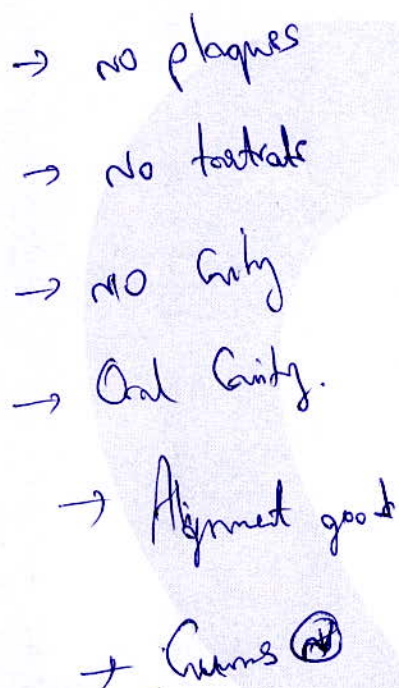 → NO plaques
→ No tartrate
→ NO Cavity
→ Oral Cavity.
→ Alignment good
→ Gums Ⓝ